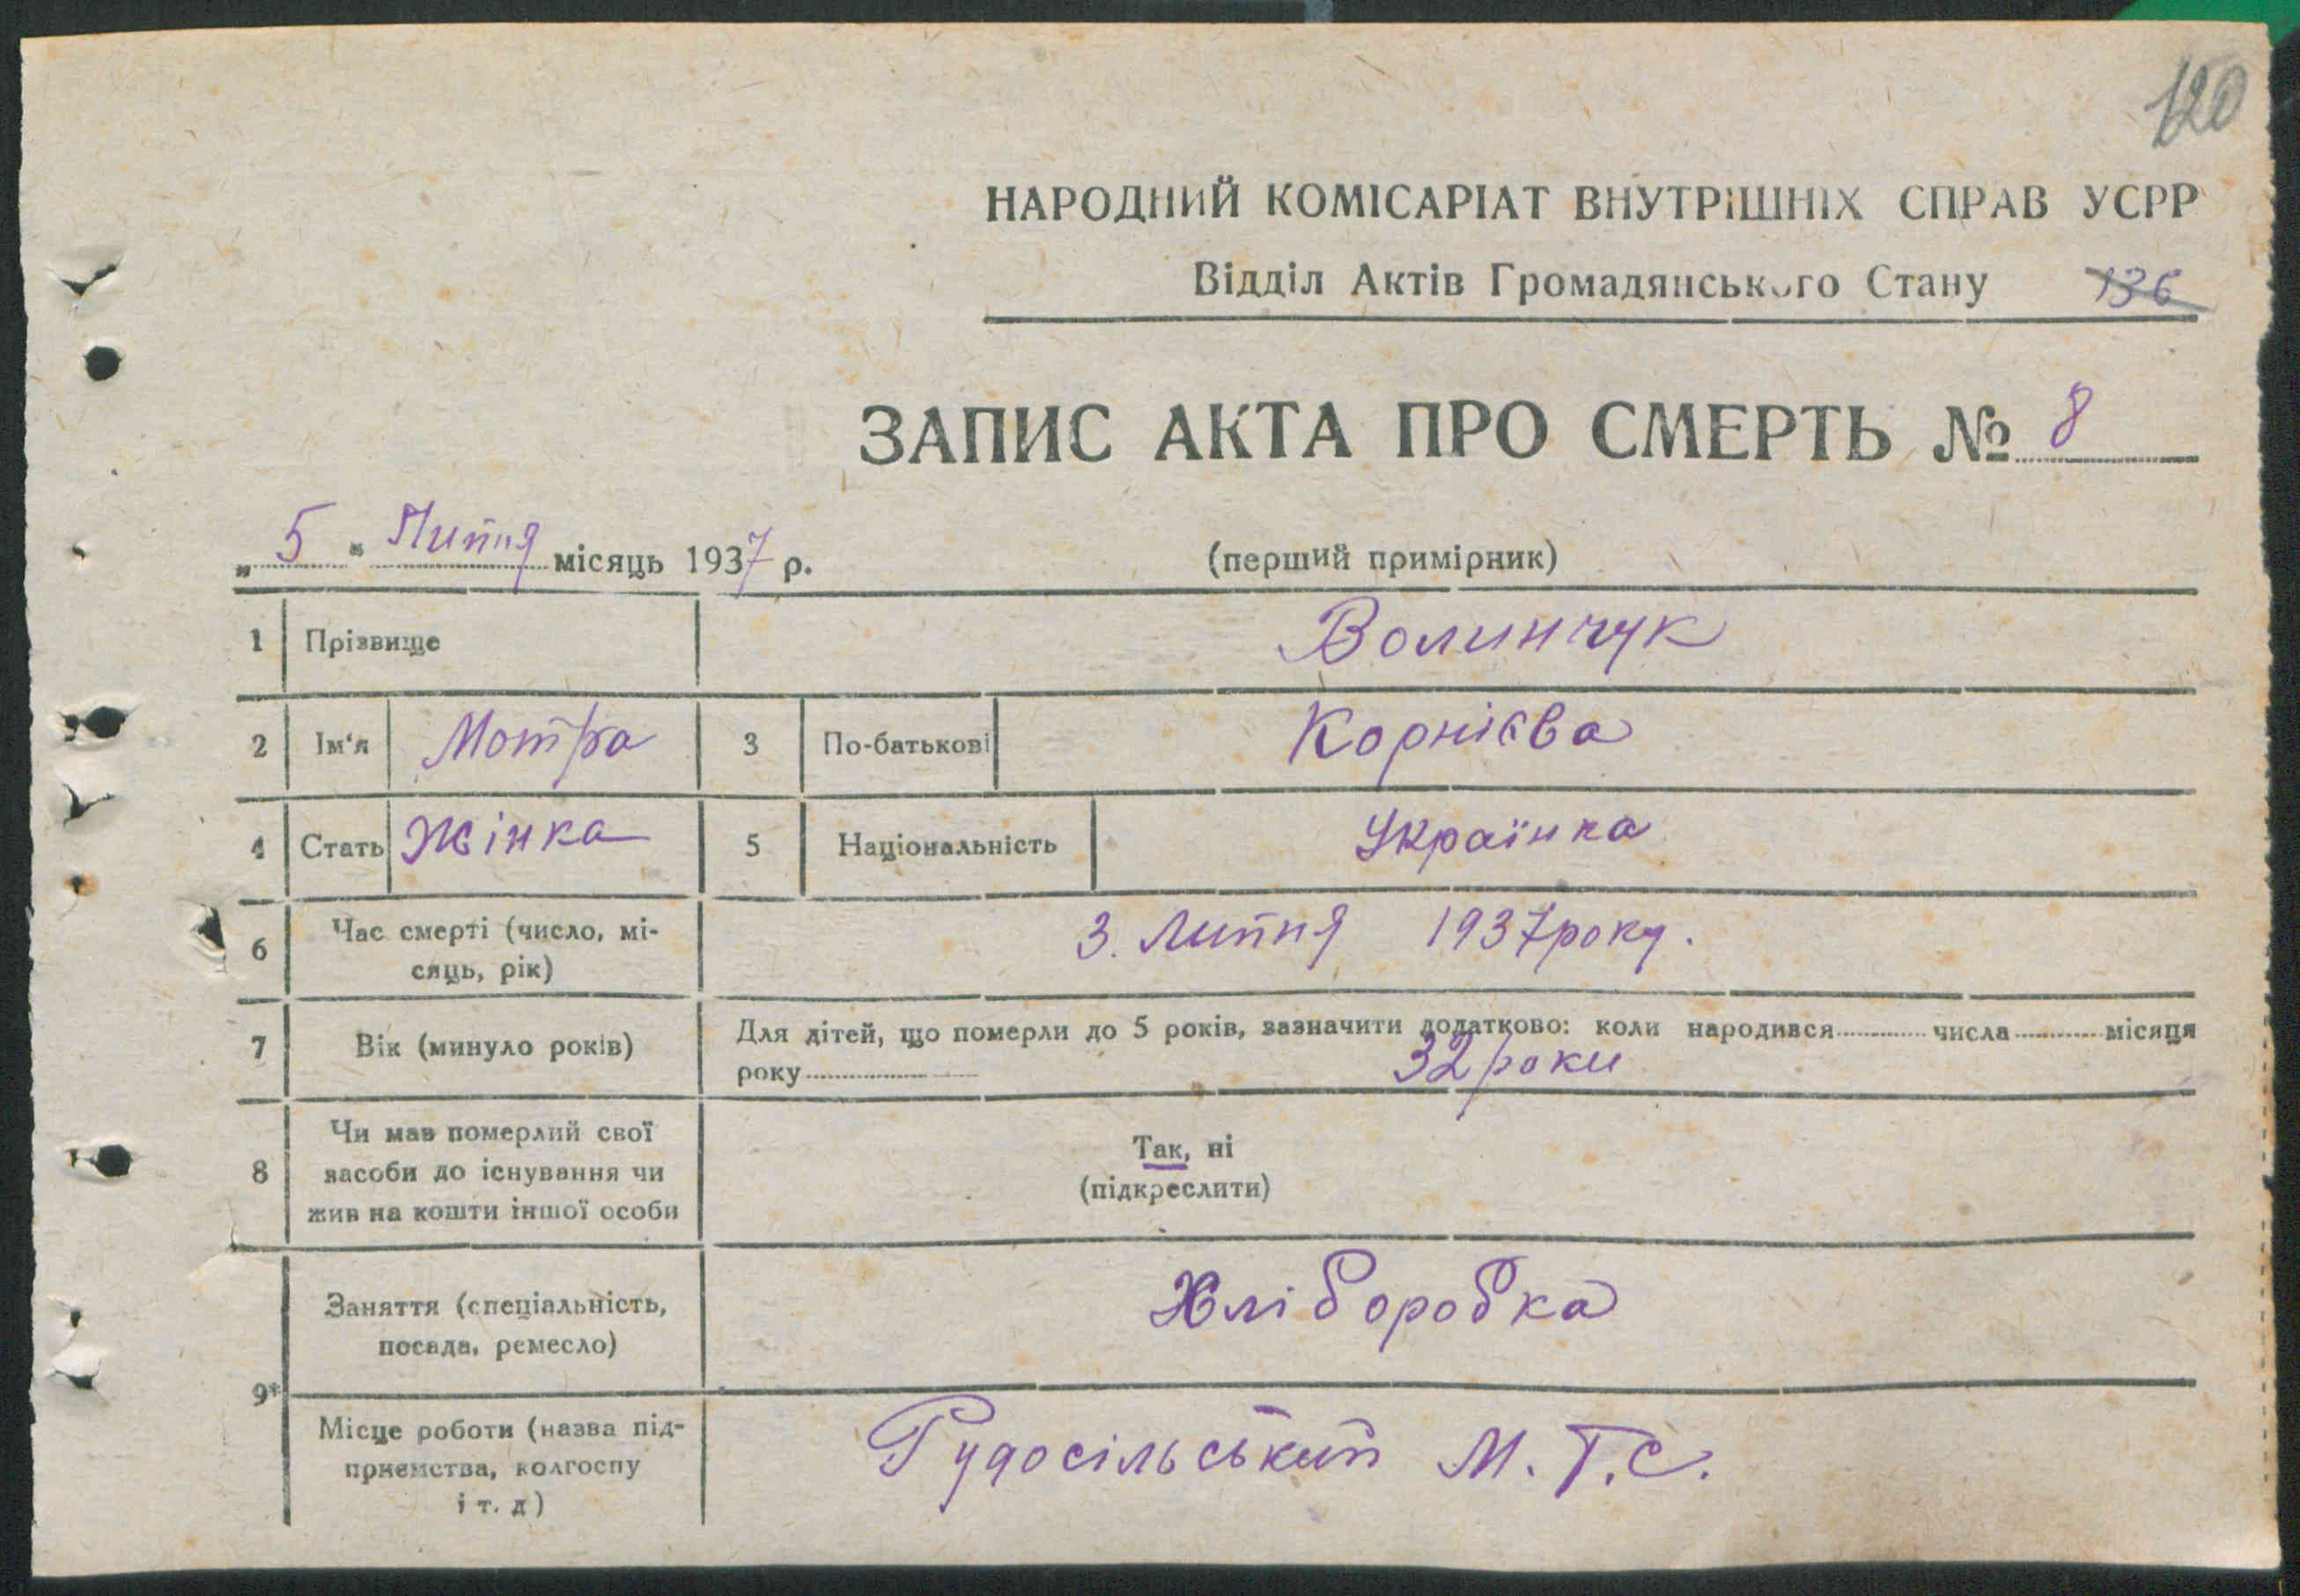 120
НАРОДНИЙ КОМІСАРІАТ ВНУТРІШНІХ СПРАВ УСРР
Відділ Актів Громадянського Стану 136
ЗАПИС АКТА ПРО СМЕРТЬ № 8
„ 5 " Липня місяць 1937 р. (перший примірник)
1 Прізвище Волинчук
2 Ім'я Мотра 3 По-батькові Корнієва
4 Стать Жінка 5 Національність Українка
6 Час смерті (число, мі-
сяць, рік) 3. Липня 1937 року.
7 Вік (минуло років) Для дітей, що померли до 5 років, зазначити додатково: коли народився числа місяця
року 32 роки
8 Чи мав померлий свої
засоби до існування чи
жив на кошти іншої особи
Так, ні
(підкреслити)
9* Заняття (спеціальність,
посада, ремесло) Хліборобка
Місце роботи (назва під-
приємства, колгоспу
і т. д) Рудосільський М.Т.С.